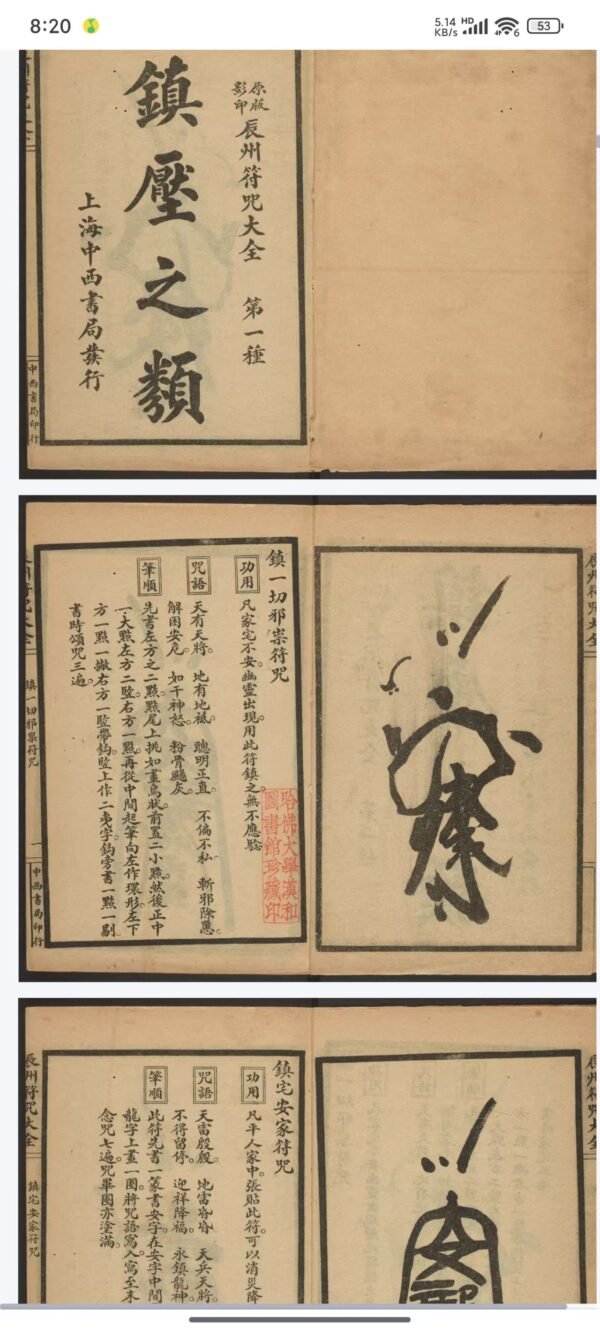 8:20
5.14 KB/s
HD
6
53
原版
影印
辰州符咒大全 第一種
鎮壓之類
上海中西書局發行
中西書局印行
辰州符咒大全
鎮一切邪祟符咒
功用
凡家宅不安。幽靈出現。用此符鎮之。無不應驗
咒語
天有天將 地有地祇 聰明正直 不偏不私 斬邪除惡。
解困安危。 如干神怒 粉骨颺灰。
筆順
先書左方之二點。點尾上挑如畫鳥狀。前置二小點。然後正中
一大點。左方二豎。右方一點。再從中間起筆向左作環形。左下
方一點一撇。右方一豎帶鈎。豎上作二夷字。鈎旁書一點一剔。
書時頌咒三遍。
哈佛大學漢和
圖書館珍藏印
鎮一切邪祟符咒
一
中西書局印行
辰州符咒大全
鎮宅安家符咒
功用
凡平人家中。張貼此符。可以消災降
咒語
天雷殷殷 地雷昏昏 天兵天將。
不得留停。 迎祥降福。 永鎮龍神
筆順
此符先書一篆書安字。在安字中間
龍字上畫一圈。將咒語寫入。寫至末
念咒七遍。咒畢圈亦塗滿。
辰州符咒大全
鎮宅安家符咒
辰州符咒大全